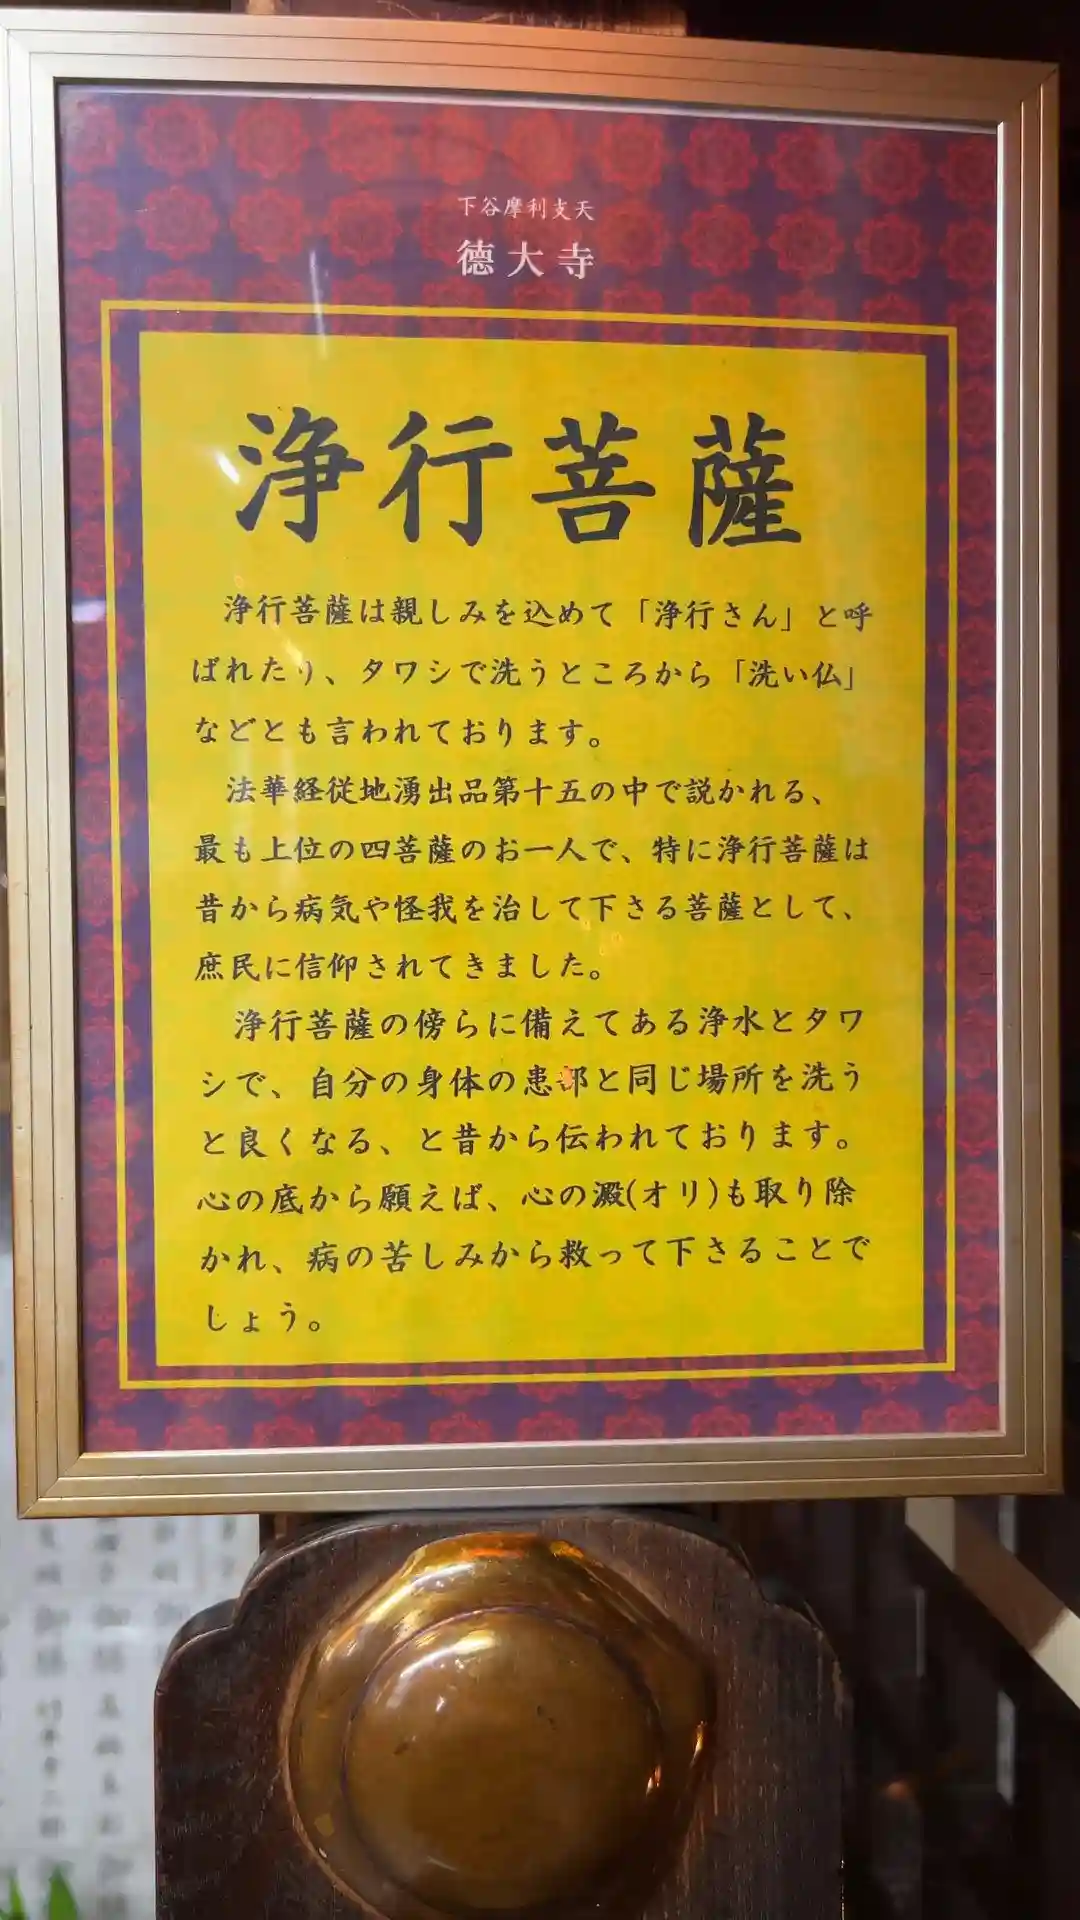 下谷摩利支天
徳大寺
浄行菩薩
浄行菩薩は親しみを込めて「浄行さん」と呼
ばれたり、タワシで洗うところから「洗い仏」
などとも言われております。
法華経従地湧出品第十五の中で説かれる、
最も上位の四菩薩のお一人で、特に浄行菩薩は
昔から病気や怪我を治して下さる菩薩として、
庶民に信仰されてきました。
浄行菩薩の傍らに備えてある浄水とタワ
シで、自分の身体の患部と同じ場所を洗う
と良くなる、と昔から伝われております。
心の底から願えば、心の澱(オリ)も取り除
かれ、病の苦しみから救って下さることで
しょう。